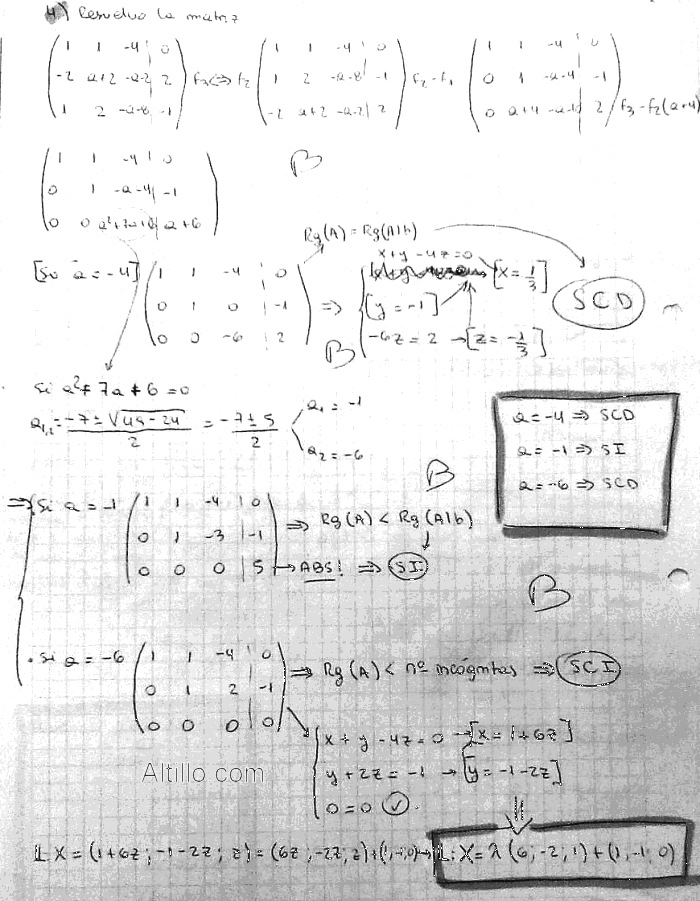 4) Resuelva la matriz
( 1 1 -4 | 0 ; -2 a+2 -a-2 | 2 ; 1 2 -a-8 | -1 ) f3⇔f2 ( 1 1 -4 | 0 ; 1 2 -a-8 | -1 ; -2 a+2 -a-2 | 2 ) f2-f1 ( 1 1 -4 | 0 ; 0 1 -a-4 | -1 ; 0 a+4 -a-10 | 2 ) f3-f2(a+4)
( 1 1 -4 | 0 ; 0 1 -a-4 | -1 ; 0 0 a²+7a+6 | a+6 )
B
Rg(A) = Rg(A|b)
[Si a=-4] ( 1 1 -4 | 0 ; 0 1 0 | -1 ; 0 0 -6 | 2 ) ⇒ { x+y-4z=0 [x=1/3]
[y=-1]
-6z=2 → [z=-1/3]
SCD
B
Si a²+7a+6=0
a1,2 = (-7±√(49-24))/2 = (-7±5)/2 a1=-1
a2=-6
a=-4 ⇒ SCD
a=-1 ⇒ SI
a=-6 ⇒ SCD
B
⇒ Si a=-1 ( 1 1 -4 | 0 ; 0 1 -3 | -1 ; 0 0 0 | 5 ) ⇒ Rg(A) < Rg(A|b)
→ ABS! ⇒ SI
B
. Si a=-6 ( 1 1 -4 | 0 ; 0 1 2 | -1 ; 0 0 0 | 0 ) ⇒ Rg(A) < nº incógnitas ⇒ SCI
{ x+y-4z=0 → [x=1+6z]
y+2z=-1 → [y=-1-2z]
0=0 ✓.
Altillo.com
⇓
L X=(1+6z; -1-2z; z)=(6z; -2z; z)+(1,-1,0) → L: X=λ(6; -2; 1)+(1, -1, 0)